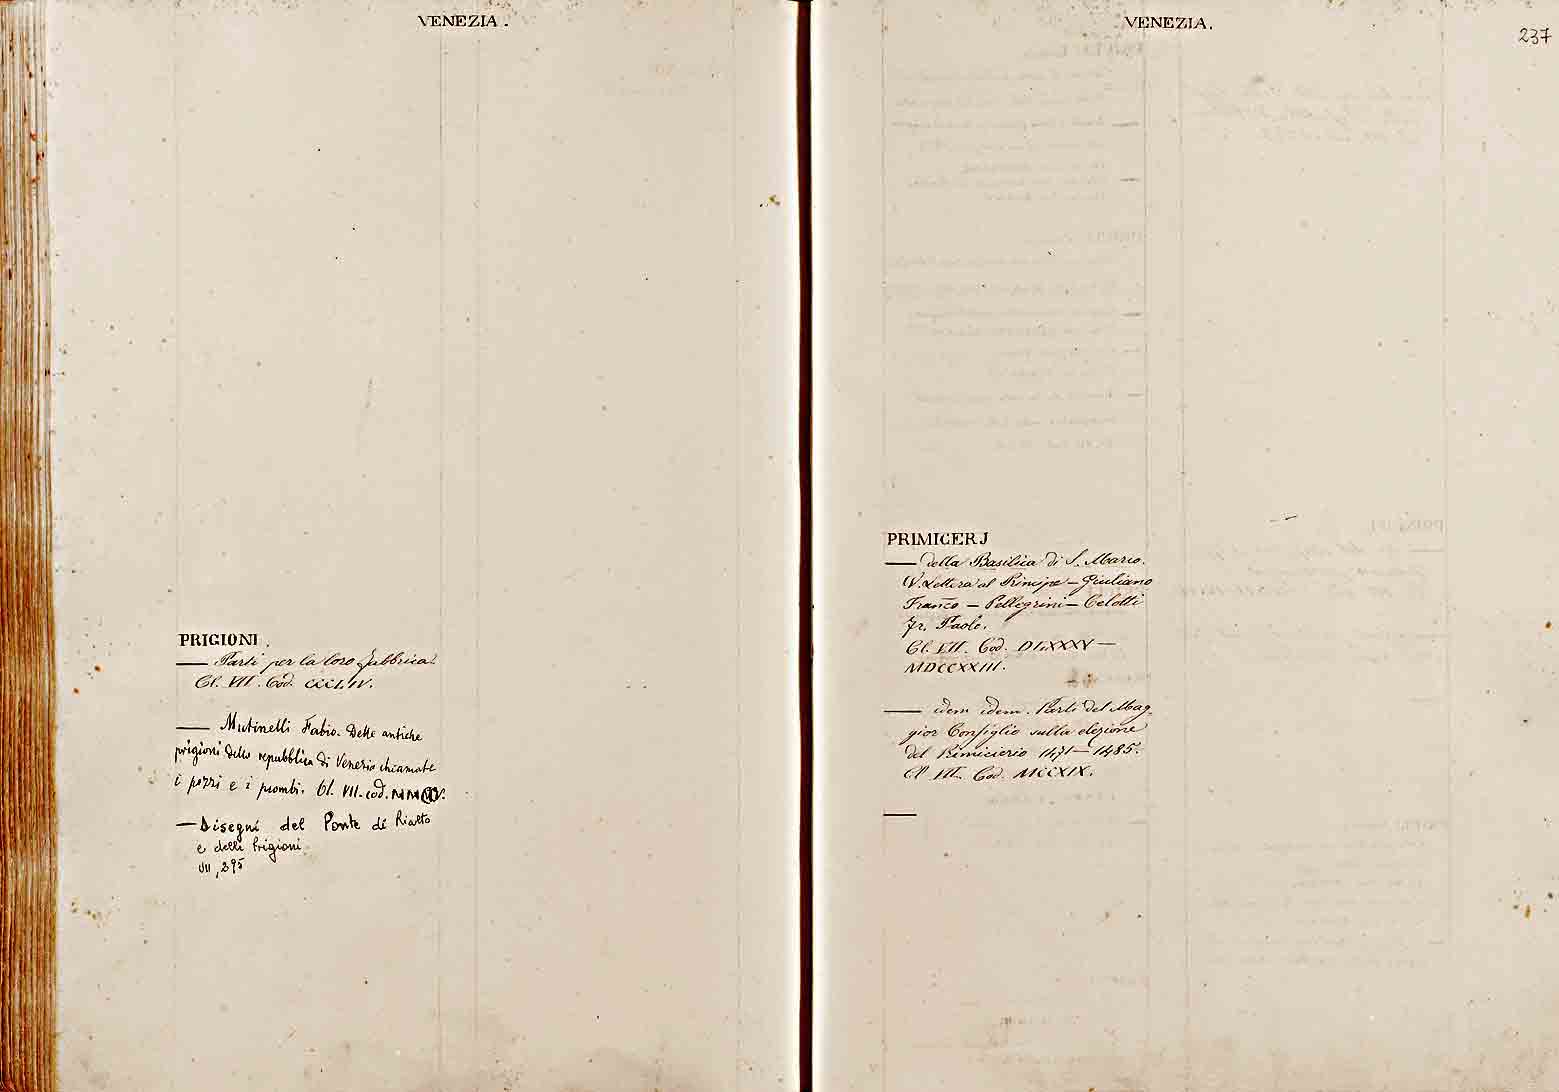 VENEZIA.
PRIGIONI.
— Parti per la loro fabbrica.
Cl. VII. Cod. CCCLIV.
— Mutinelli Fabio. Delle antiche
prigioni della repubblica di Venezia chiamate
i pozzi e i piombi. Cl. VII. cod.
— Disegni del Ponte di Rialto
e delle Prigioni
VII, 295
VENEZIA.
237
PRIMICERJ
— della Basilica di S. Marco.
(V. Lettera al Principe — Giuliano
Franco — Pellegrini — Celotti
Fr. Paolo.
Cl. VII. Cod. DLXXXV —
MDCCXXIII.
— idem idem. Parti del Mag-
gior Consiglio sulla elezione
del Primicierio 1471 — 1485.
Cl. VII. Cod. MCCXIX.
—